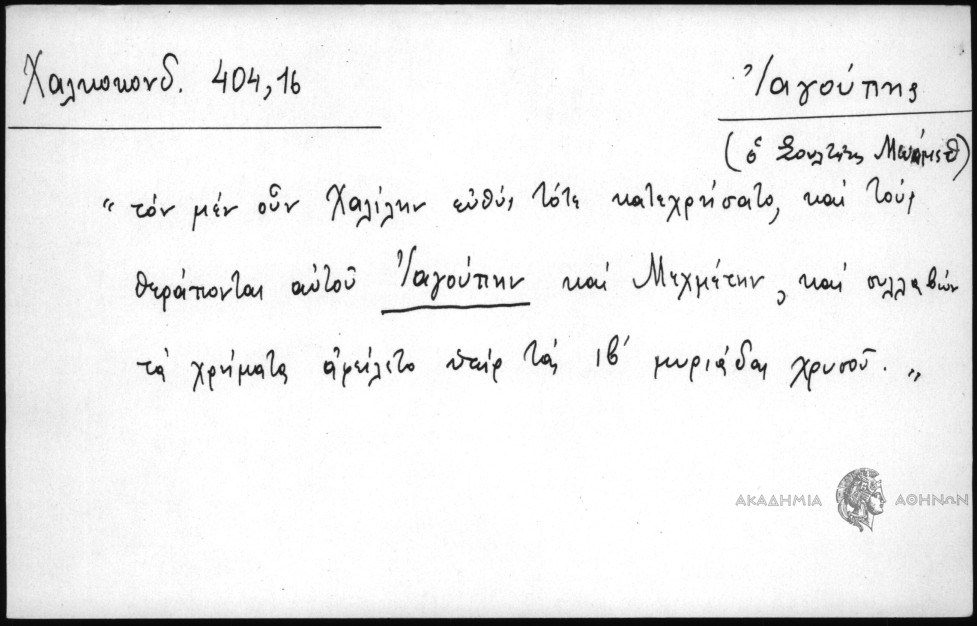 Χαλκοκονδ. 404,16
Ἰαγούπης
(ὁ Σουλτάνος Μωάμεθ)
“ τόν μέν οὖν Χαλίλην εὐθύς τότε κατεχρήσατο, καί τούς
θεράποντας αὐτοῦ Ἰαγούπην καί Μεχμέτην, καί συλλαβών
τά χρήματα ἀφείλετο ὑπέρ τάς ιβ´ μυριάδας χρυσοῦ. „
ΑΚΑΔΗΜΙΑ ΑΘΗΝΩΝ